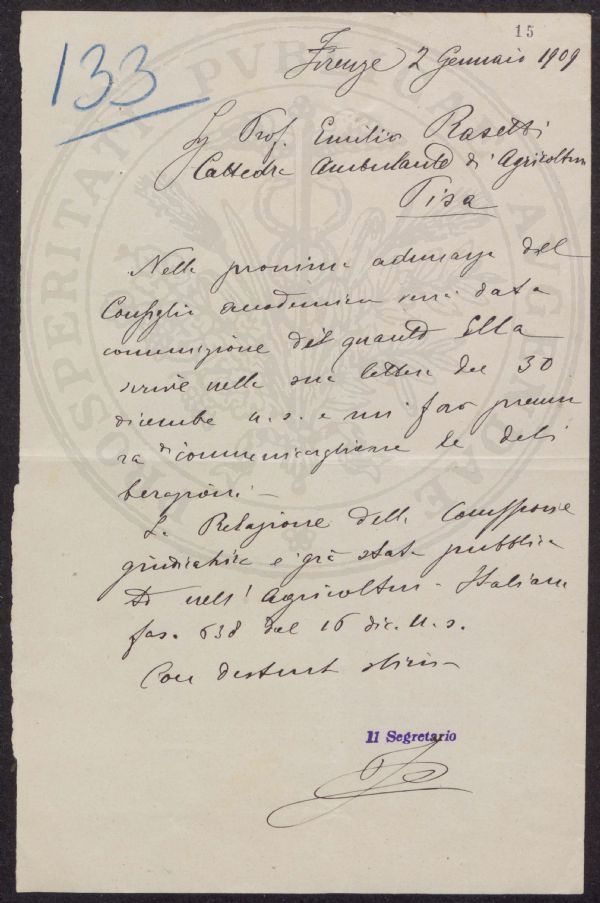 15
133
Firenze 2 Gennaio 1909
Sig Prof. Emilio Rasetti
Cattedra Ambulante di Agricoltura
Pisa
Nella prossima adunanza del
Consiglio accademico verrà data
comunizione del quanto Ella
scrive nella sua lettera del 30
dicembre u.s. e mi farò premu
ra di comunicargliene le deli
berazioni -
La Relazione della Commissione
giudicatrice è già stata pubblica
ta nell' Agricoltura Italiana
fas. 638 del 16 dic. u.s.
Con distinta stima
Il Segretario
PROSPERITATI PVBLICAE AVGENDAE